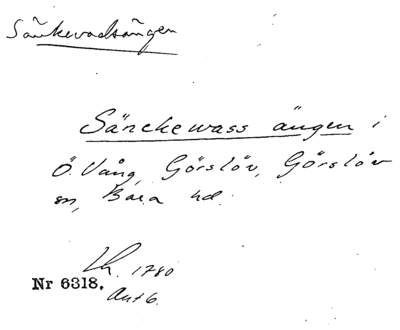 Sänkevadsängen
Särckewass ängen i
Ö. Vång, Görslöv, Görslöv
sn, Bara hd.
Lh. 1780
Nr 6318.
Ant 6.